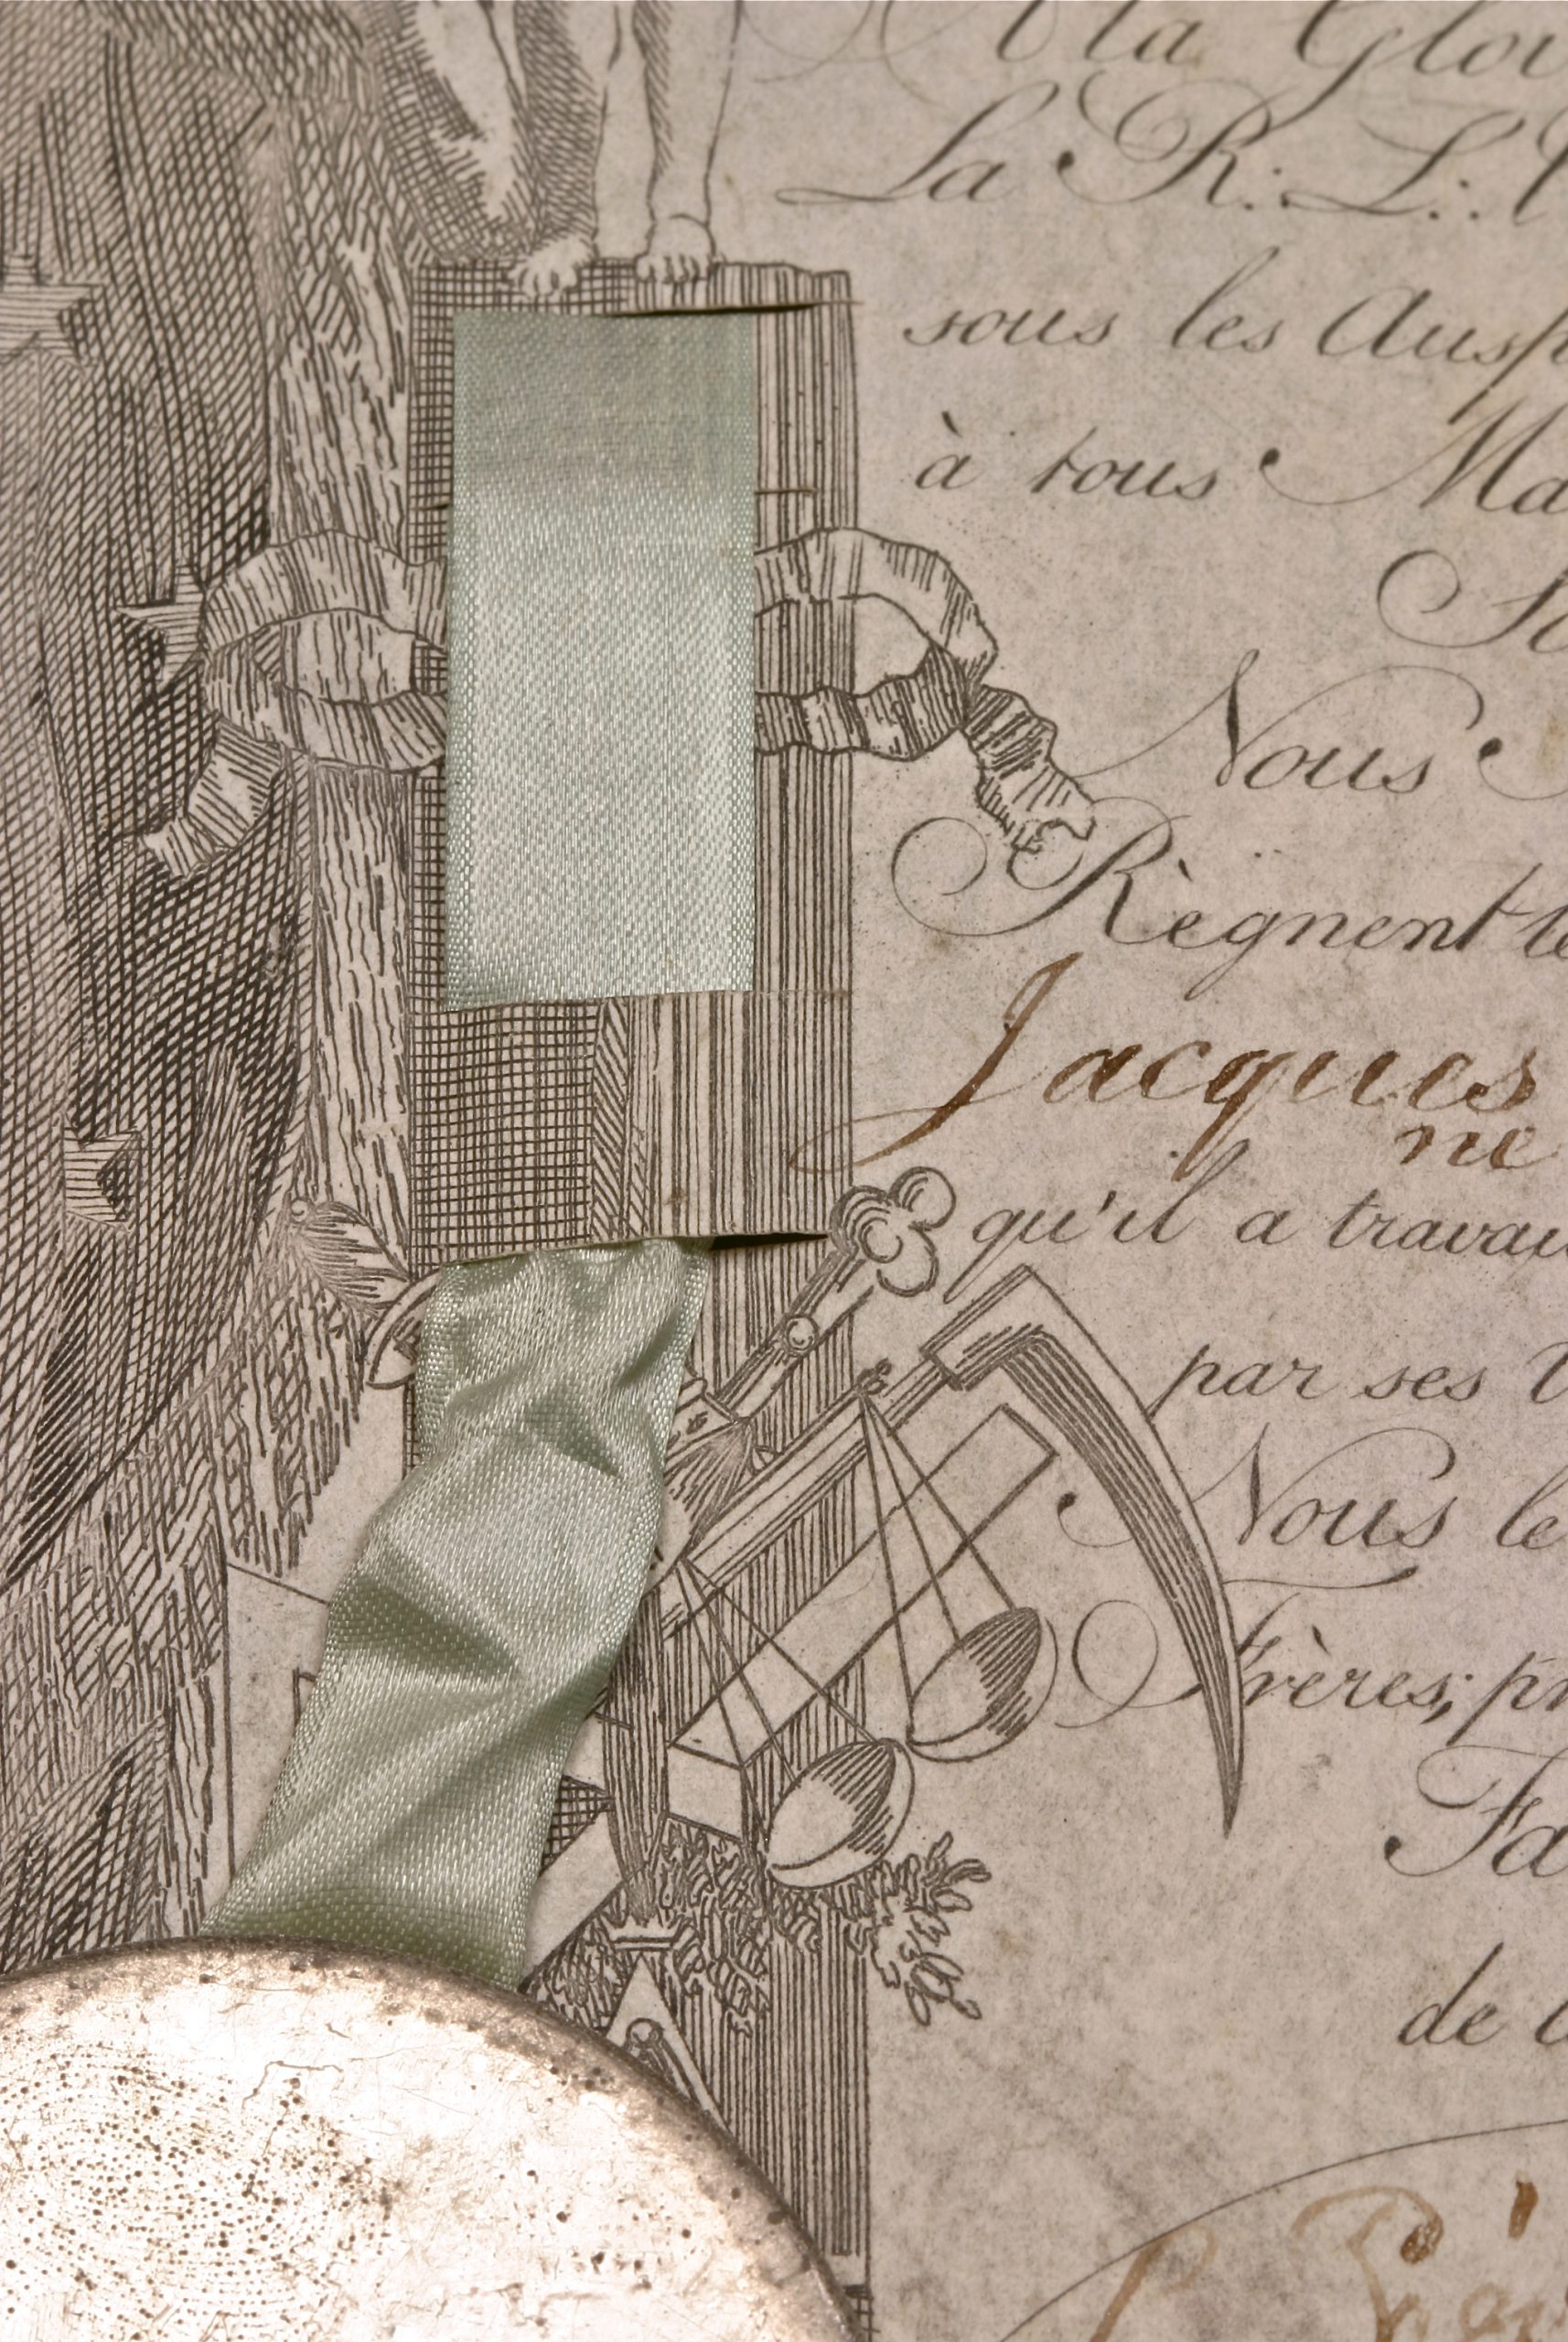 A la Gloi
La R∴ L∴
sous les Ausp
à tous Ma
Nous
Règnent
Jacques
ne
qu'il a travai
par ses
Nous le
Frères; pr
Fa
de